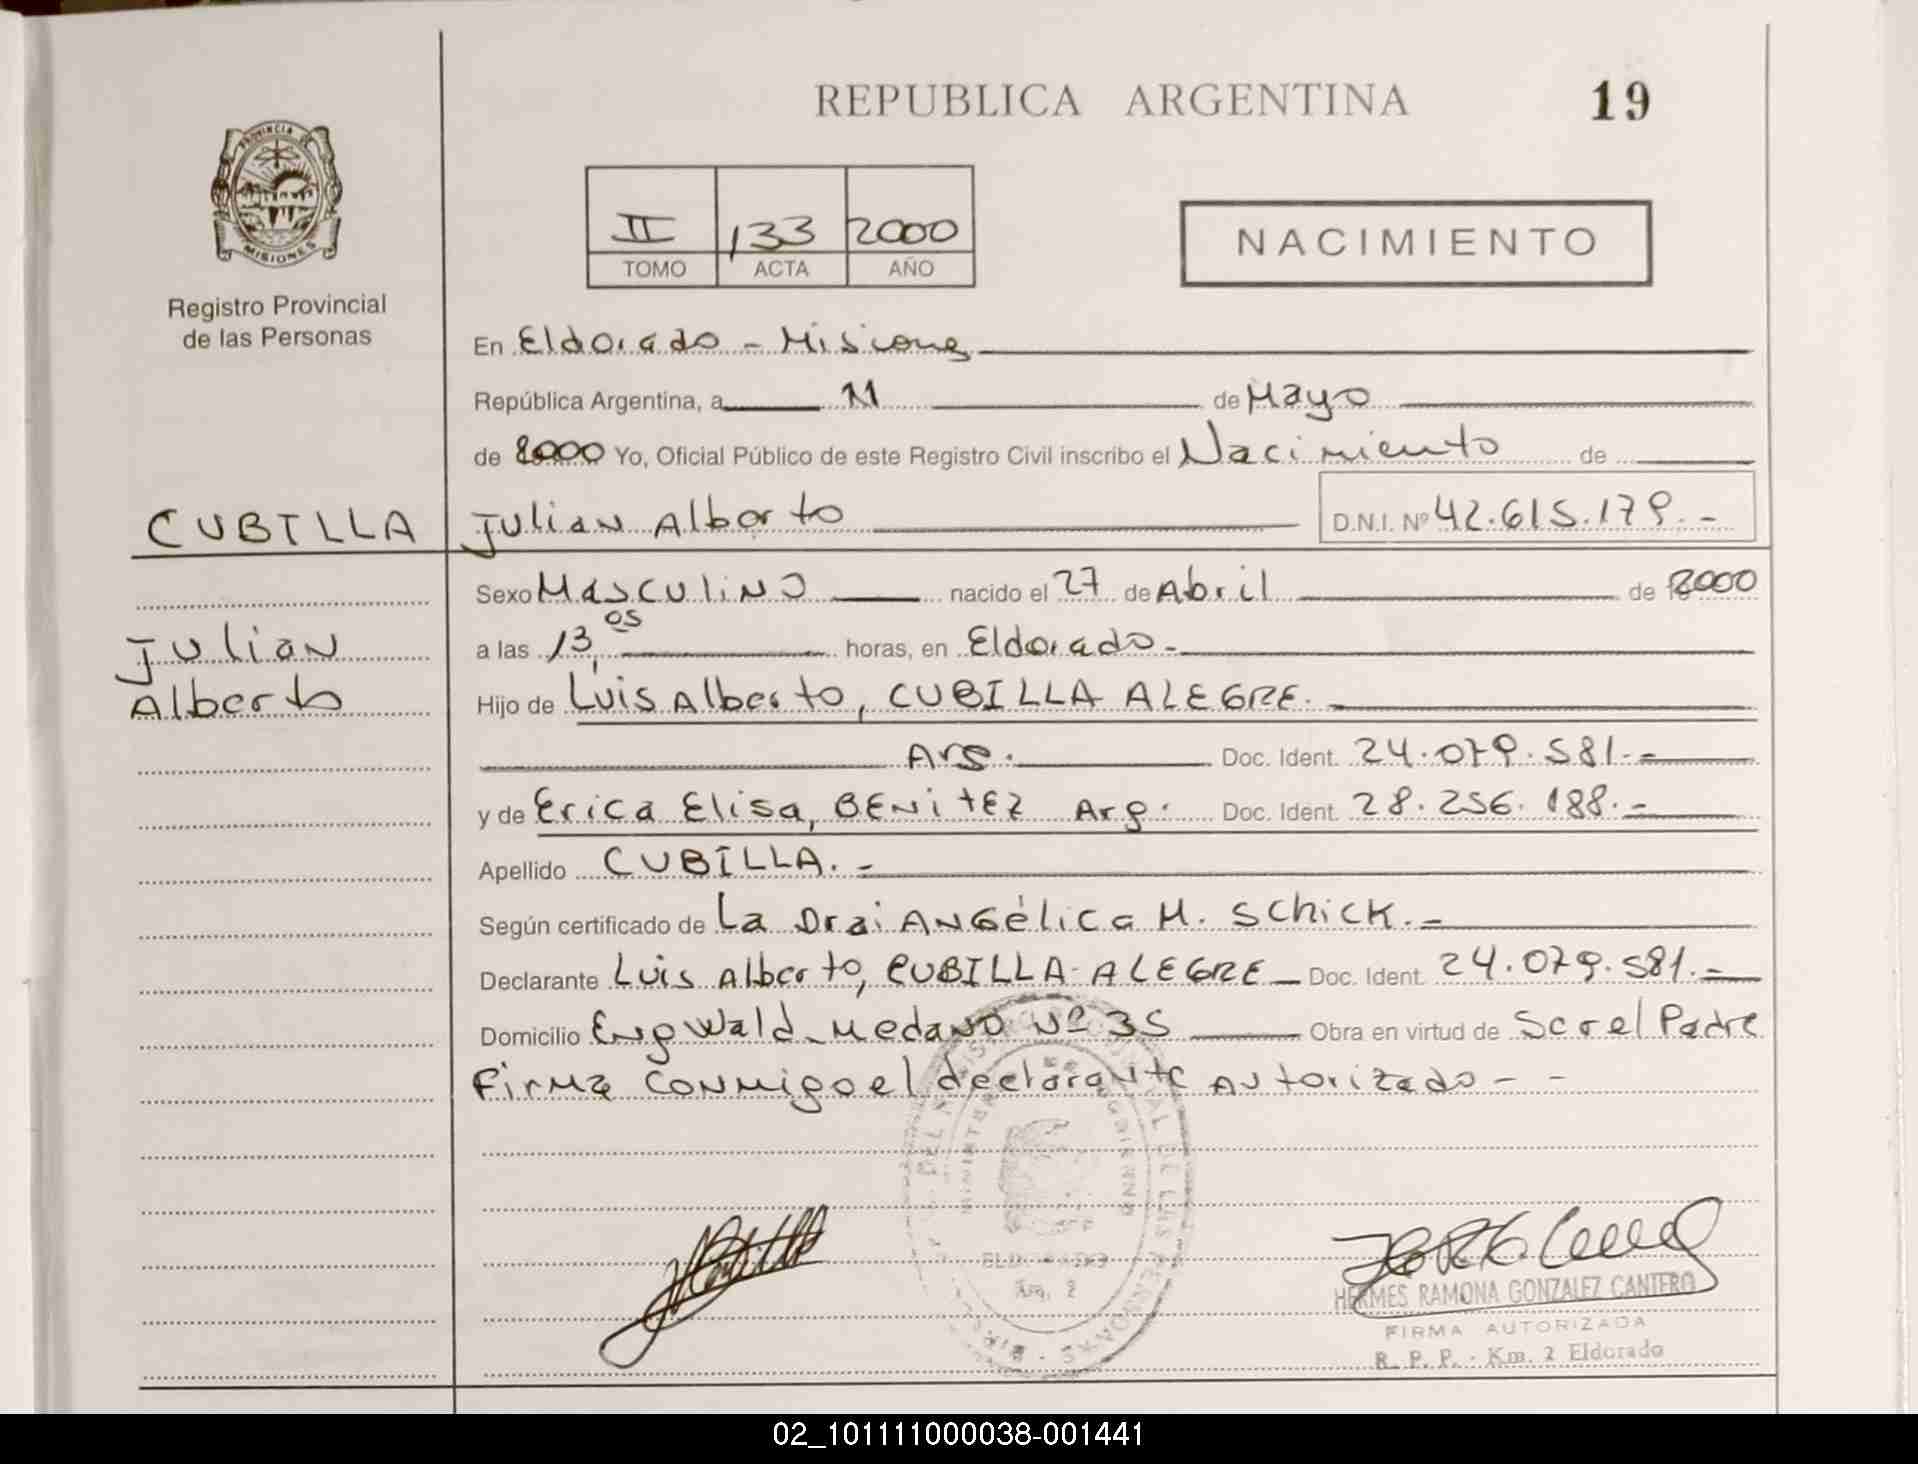 REPUBLICA ARGENTINA
19
PROVINCIA DE
MISIONES
Registro Provincial
de las Personas
II 133 2000
TOMO ACTA AÑO
NACIMIENTO
En Eldorado - Misiones
República Argentina, a 11 de Mayo
de 2000 Yo, Oficial Público de este Registro Civil inscribo el Nacimiento de
CUBILLA
Julian Alberto D.N.I. Nº 42.615.179.-
Sexo Masculino nacido el 27 de Abril de 2000
Julian
Alberto
a las 13,05 horas, en Eldorado-
Hijo de Luis Alberto, CUBILLA ALEGRE.
Arg. Doc. Ident. 24.079.581.-
y de Erica Elisa, BENITEZ Arg. Doc. Ident. 28.256.188.-
Apellido CUBILLA.-
Según certificado de La Dra: ANGélica M. SChicK.-
Declarante Luis Alberto, CUBILLA ALEGRE Doc. Ident. 24.079.581.-
Domicilio Engwald Medano Nº 35 Obra en virtud de Ser el Padre
Firma conmigo el declarante Autorizado - -
ELDORADO
Km. 2
HERMES RAMONA GONZALEZ CANTERO
FIRMA AUTORIZADA
R. P. P. - Km. 2 Eldorado
02_101111000038-001441